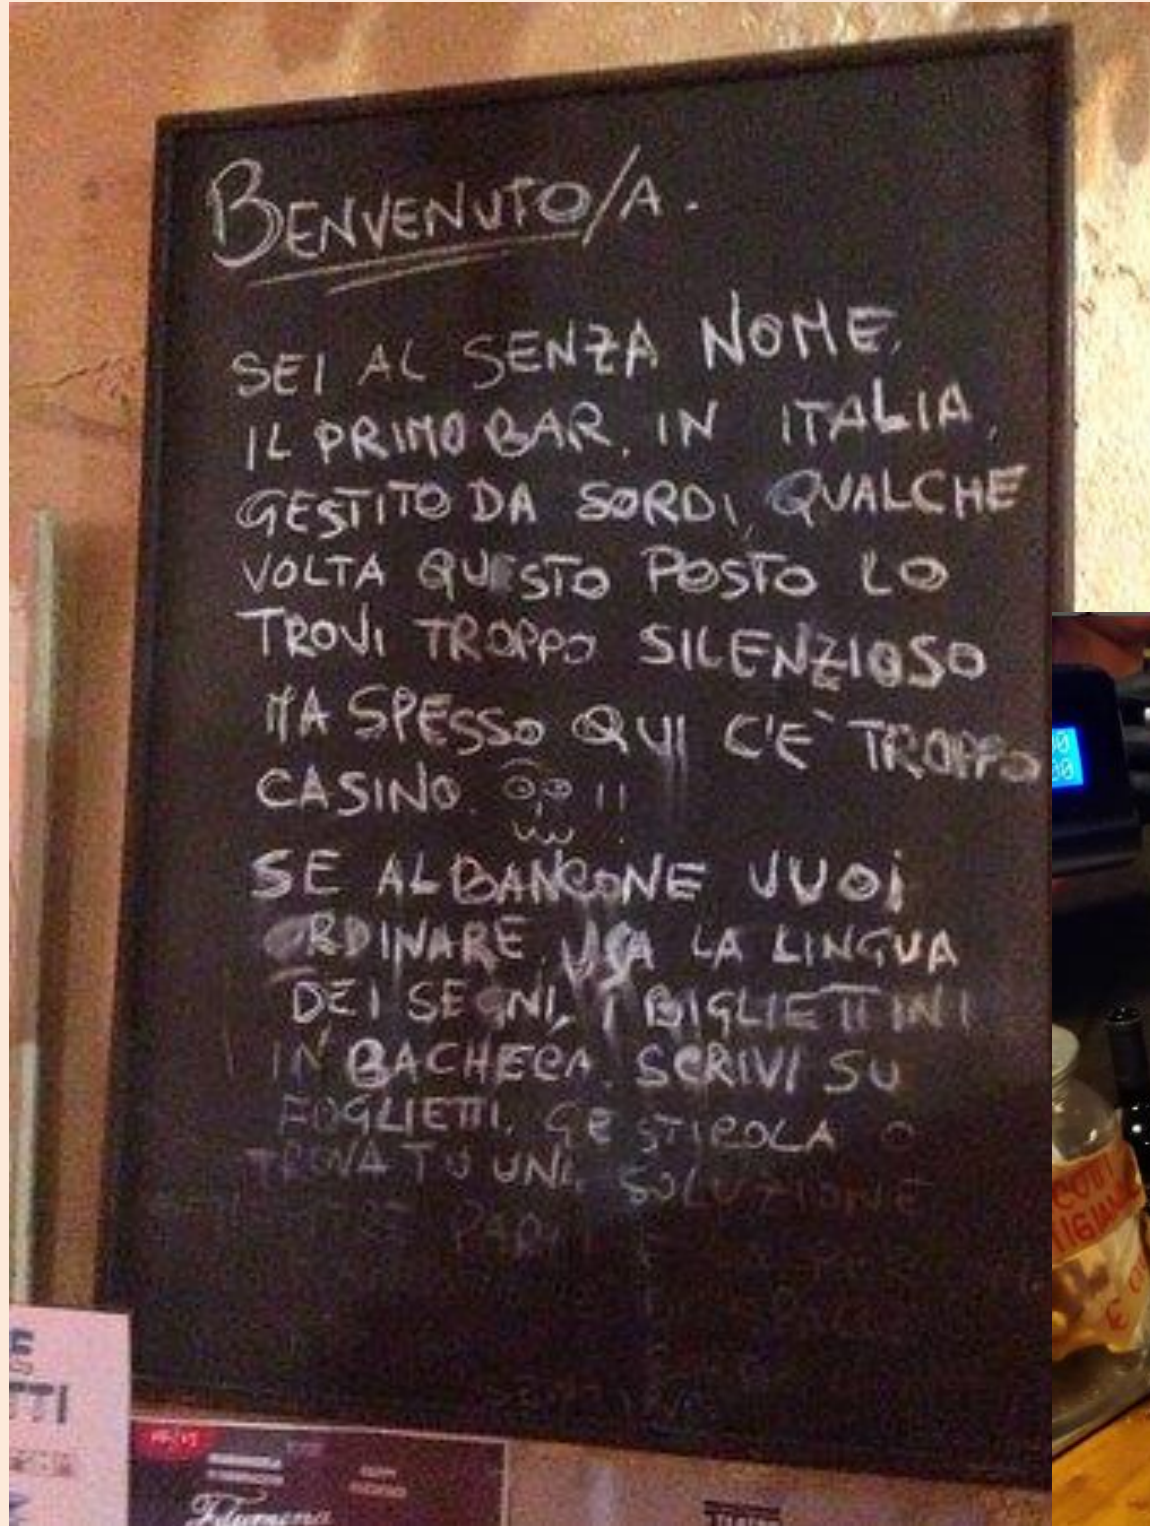 BENVENUTO/A.
SEI AL SENZA NOME,
IL PRIMO BAR, IN ITALIA,
GESTITO DA SORDI, QUALCHE
VOLTA QUESTO POSTO LO
TROVI TROPPO SILENZIOSO
MA SPESSO QUI C'È TROPPO
CASINO !!
SE AL BANCONE VUOI
ORDINARE, USA LA LINGUA
DEI SEGNI, I BIGLIETTINI
IN BACHECA, SCRIVI SU
FOGLIETTI, GESTICOLA O
TROVA TU UNA SOLUZIONE
Filumena